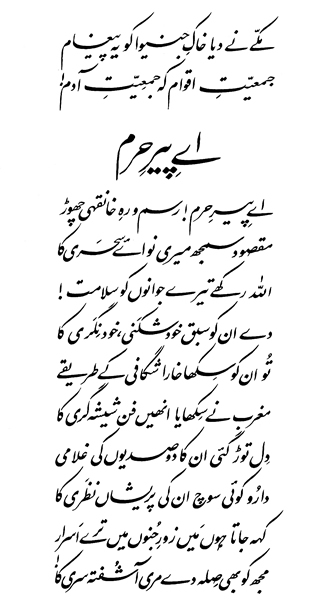 مکّے نے دیا خاکِ جنیوا کو یہ پیغام
جمعیّتِ اقوام کہ جمعیّتِ آدم!
اے پیرِ حرم
اے پیرِ حرم! رسم و رہِ خانقہی چھوڑ
مقصود سمجھ میری نوائے سحَری کا
اللہ رکھے تیرے جوانوں کو سلامت!
دے ان کو سبق خود شکَنی، خود نِگَری کا
تُو ان کو سِکھا خارا شگافی کے طریقے
مغرب نے سِکھایا انھیں فن شیشہ گری کا
دِل توڑ گئی ان کا دو صدیوں کی غلامی
دارُو کوئی سوچ ان کی پریشاں نظَری کا
کہہ جاتا ہوں مَیں زورِ جُنوں میں ترے اَسرار
مجھ کو بھی صِلہ دے مری آشُفتہ سری کا!